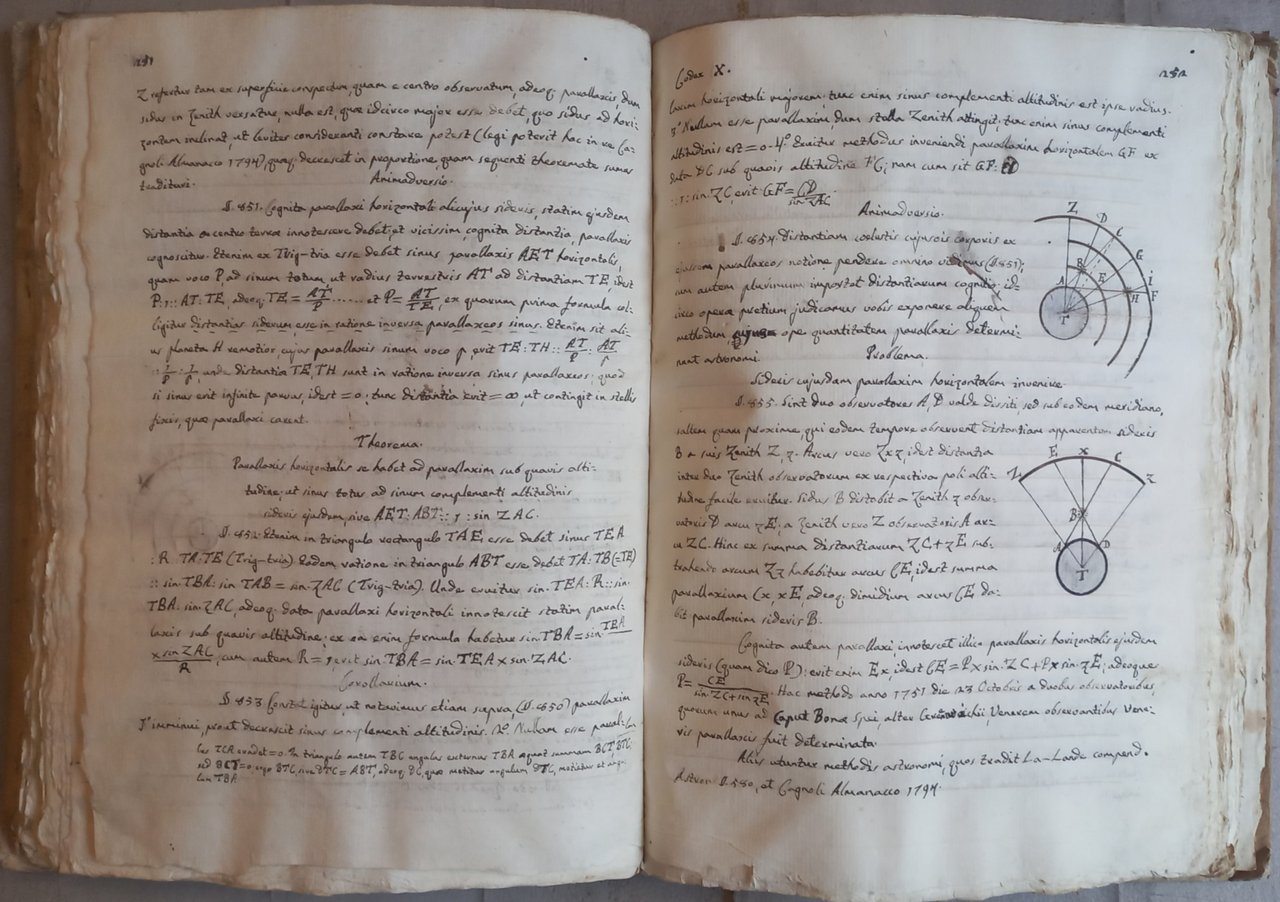 251
Z refertur tam ex superficie conspectum, quam e centro observatum, adeoq; parallaxis, dum
sidus in Zenith versatur, nulla est, quæ idcirco major esse debet, quo sidus ad hori-
zontem inclinat, ut leviter consideranti constare potest (legi poterit hac in re Ca-
gnoli Almanacco 1794), quæq; decrescit in proportione, quam sequenti theoremate sumus
tradituri.
Animadversio.
§. 851. Cognita parallaxi horizontali alicujus sideris, statim ejusdem
distantia a centro terræ innotescere debet, et vicissim, cognita distantia, parallaxis
cognoscitur. Etenim ex Trig-tria esse debet sinus parallaxis AET horizontalis,
quam voco P, ad sinum totum, ut radius terrestris AT ad distantiam TE, idest
P:1:: AT: TE, adeoq; TE = AT/P ...... et P = AT/TE, ex quarum prima formula col-
ligitur distantias siderum esse in ratione inversa parallaxeos sinus. Etenim sit ali-
us planeta H remotior cujus parallaxis sinum voco p, erit TE: TH :: AT/P : AT/p
:: 1/P : 1/p, unde distantia TE, TH sunt in ratione inversa sinus parallaxeos: quod
si sinus erit infinite parvus, idest = 0, tunc distantia erit = ∞, ut contingit in stellis
fixis, quæ parallaxi carent.
Theorema.
Parallaxis horizontalis se habet ad parallaxim sub quavis alti-
tudine, ut sinus totus ad sinum complementi altitudinis
sideris ejusdem, sive AET: ABT:: 1 : sin ZAC.
§. 852. Etenim in triangulo rectangulo TAE, esse debet sinus TEA
: R :: TA: TE (Trig-tria). Eadem ratione in triangulo ABT esse debet TA: TB (=TE)
:: sin. TBA: sin TAB = sin ZAC (Trig-tria). Unde eruitur sin. TEA: R:: sin.
TBA: sin. ZAC, adeoq; data parallaxi horizontali innotescit statim paral-
laxis sub quavis altitudine: ex ea enim formula habetur sin. TBA = sin. TEA
x sin ZAC/R, cum autem R = 1, erit sin. TBA = sin. TEA x sin. ZAC.
Corollarium.
§. 853 Constat igitur, ut notavimus etiam supra, (§. 850) parallaxim
1° imminui, prout decrescit sinus complementi altitudinis. 2° Nullam esse paral-
lax TCA evadet = 0. In triangulo autem TBC angulus externus TBA æquat summam BCT, BTC;
sed BCT = 0, ergo BTC, sive DTC = ABT, adeoq; DC, quæ metitur angulum DTC, metietur et angu
lum TBA
Codex X.
252
laxim horizontali majorem: tunc enim sinus complementi altitudinis est ipse radius.
3° Nullam esse parallaxim, dum stella Zenith attingit; tunc enim sinus complementi
altitudinis est = 0. 4° Eruitur methodus inveniendi parallaxim horizontalem GF ex
data DC sub quavis altitudine FC; nam cum sit GF:
:: 1: sin. ZC, erit GF = CD/sin. ZAC
Animadversio.
§. 854. Distantiam cœlestis cujusvis corporis ex
ejusdem parallaxeos notione pendere omnino vidimus (§. 851);
cum autem plurimum importet distantiarum cognitio, id-
circo operæ pretium judicamus vobis exponere aliquem
methodum, cujus ope quantitatem parallaxis determi-
nant astronomi.
Problema.
Sideris cujusdam parallaxim horizontalem invenire.
§. 855. Sint duo observatores A, D valde dissiti, sed sub eodem meridiano,
saltem quam proxime, qui eodem tempore observent distantiam apparentem sideris
B a suis Zenith Z, z. Arcus vero Zxz, idest distantia
inter duo Zenith observatorum ex respectiva poli alti-
tudine facile eruitur. Sidus B distabit a Zenith z obser-
vatoris D arcu zE; a Zenith vero Z observatoris A ar-
cu ZC. Hinc ex summa distantiarum ZC + zE sub-
trahendo arcum Zz habebitur arcus CE, idest summa
parallaxium Cx, xE, adeoq; dimidium arcus CE da-
bit parallaxim sideris B.
Cognita autem parallaxi innotescet illico parallaxis horizontalis ejusdem
sideris (quam dico P): erit enim Ex, idest CE = P x sin. ZC + P x sin. zE; adeoque
P = CE/sin. ZC + sin zE. Hac methodo anno 1751 die 23 Octobris a duobus observatoribus,
quorum unus ad Caput Bonæ Spei, alter Grenvichii Venerem observantibus Vene-
ris parallaxis fuit determinata.
Aliis utuntur methodis astronomi, quos tradit La-Lande compend.
Astron. §. 580, et Cagnoli Almanacco 1794.
Z
D
C
G
I
F
B
E
H
A
T
E
X
C
Z
z
B
A
D
T